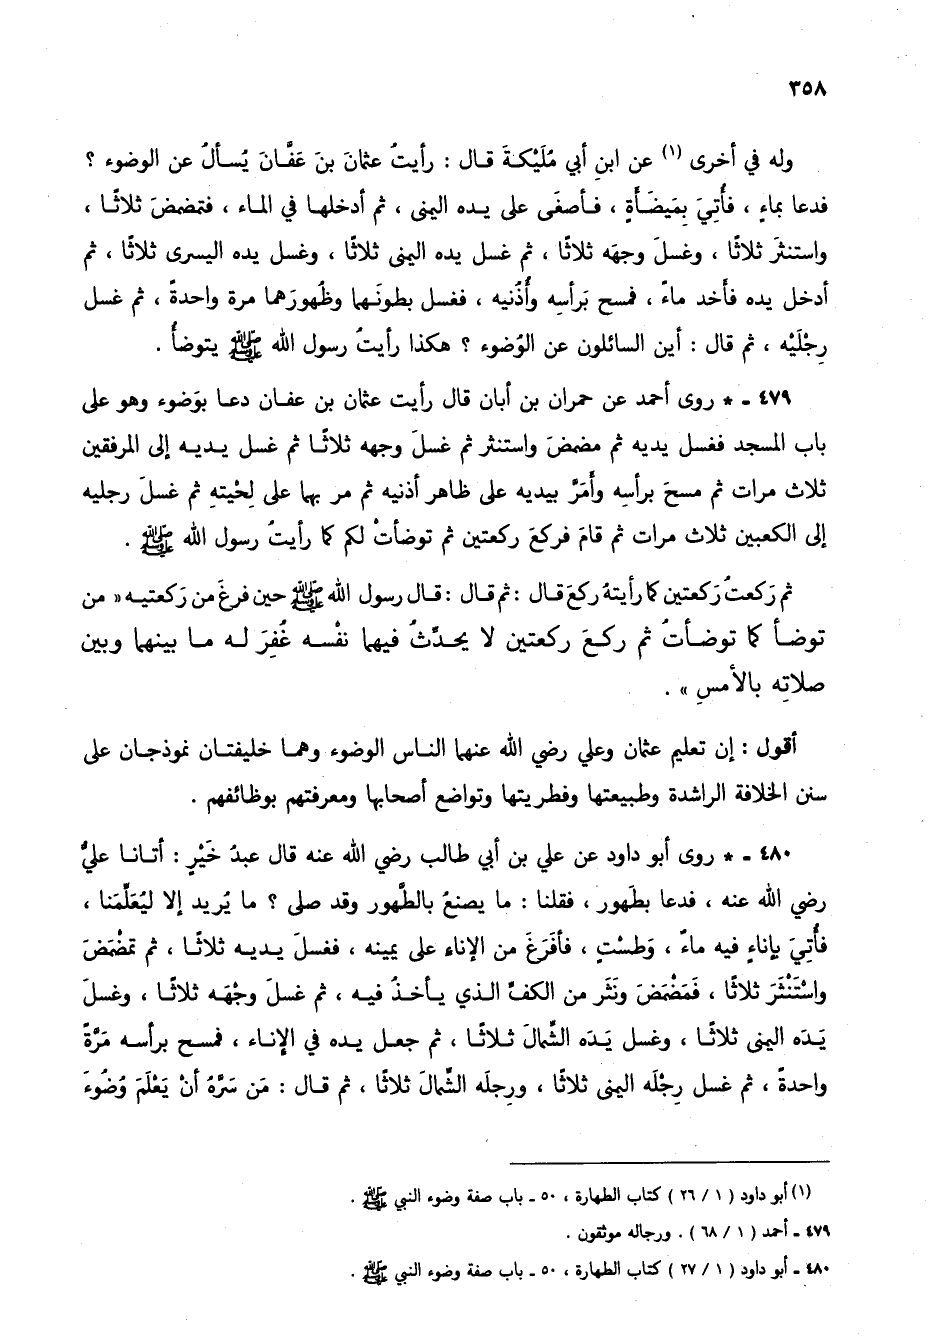 ٣٥٨
وله في أخرى (١) عن ابنِ أبي مُلَيْكةَ قال : رأيتُ عثمانَ بنَ عَفَّانَ يُسألُ عن الوضوء ؟
فدعا بماءٍ ، فأُتيَ بِمَيضَأَةٍ ، فأصغَى على يده اليمنى ، ثم أدخلها في الماء ، فتمضمضَ ثلاثًا ،
واستنثرَ ثلاثًا ، وغسلَ وجهَه ثلاثًا ، ثم غسل يده اليمنى ثلاثًا ، وغسل يده اليسرى ثلاثًا ، ثم
أدخل يده فأخد ماءً ، فمسح بَرأسِه وأُذُنيه ، فغسل بطونَهما وظُهورَهما مرة واحدةً ، ثم غسل
رِجْلَيْه ، ثم قال : أين السائلون عن الوُضوء ؟ هكذا رأيتُ رسول الله ﷺ يتوضأُ .
٤٧٩ - * روى أحمد عن حمران بن أبان قال رأيت عثمان بن عفان دعا بوَضوء وهو على
باب المسجد فغسل يديه ثم مضمضَ واستنثر ثم غسلَ وجهه ثلاثًا ثم غسل يديه إلى المرفقين
ثلاث مرات ثم مسحَ برأسِه وأَمَرَّ بيديه على ظاهر أذنيه ثم مر بها على لِحْيتِهِ ثم غسلَ رجليه
إلى الكعبين ثلاث مرات ثم قامَ فركعَ ركعتين ثم توضأتْ لكم كما رأيتُ رسول الله ﷺ .
ثم رَكعتُ رَكعتين كما رأيتهُ ركعَ قال : ثم قال : قال رسول الله ﷺ حين فرغَ من رَكعتيه « من
توضأ كما توضأتُ ثم ركعَ ركعتين لا يحدِّثُ فيهما نفْسه غُفِرَ له ما بينهما وبين
صلاتِه بالأمسِ » .
أقول : إن تعليم عثمان وعلي رضي الله عنهما الناس الوضوء وهما خليفتان نموذجان على
سنن الخلافة الراشدة وطبيعتها وفطريتها وتواضع أصحابها ومعرفتهم بوظائفهم .
٤٨٠ - * روى أبو داود عن علي بن أبي طالب رضي الله عنه قال عبدُ خَيْرٍ : أتانا عليٌّ
رضي الله عنه ، فدعا بطَهور ، فقلنا : ما يصنعُ بالطَّهور وقد صلى ؟ ما يُريد إلا ليُعَلِّمَنا ،
فأُتيَ بإناءٍ فيه ماءٌ ، وَطسْتٍ ، فأفرَغَ من الإناء على يمينه ، فغسلَ يديه ثلاثًا ، ثم تمضْمَضَ
واسْتَنْثَرَ ثلاثًا ، فَمَضْمَضَ ونَثَر من الكفِّ الذي يأخذُ فيه ، ثم غسلَ وجْهَه ثلاثًا ، وغسلَ
يَدَه اليمنى ثلاثًا ، وغسل يَدَه الشِّمالَ ثلاثًا ، ثم جعل يده في الإناء ، فمسح برأسه مَرَّةً
واحدةً ، ثم غسل رِجْلَه اليمنى ثلاثًا ، ورِجلَه الشِّمالَ ثلاثًا ، ثم قال : مَن سَرَّهُ أنْ يَعْلَمَ وُضُوءَ
(١) أبو داود ( ١ / ٢٦ ) كتاب الطهارة ، ٥٠ - باب صفة وضوء النبي ﷺ .
٤٧٩ - أحمد ( ١ / ٦٨ ) . ورجاله موثقون .
٤٨٠ - أبو داود ( ١ / ٢٧ ) كتاب الطهارة ، ٥٠ - باب صفة وضوء النبي ﷺ .